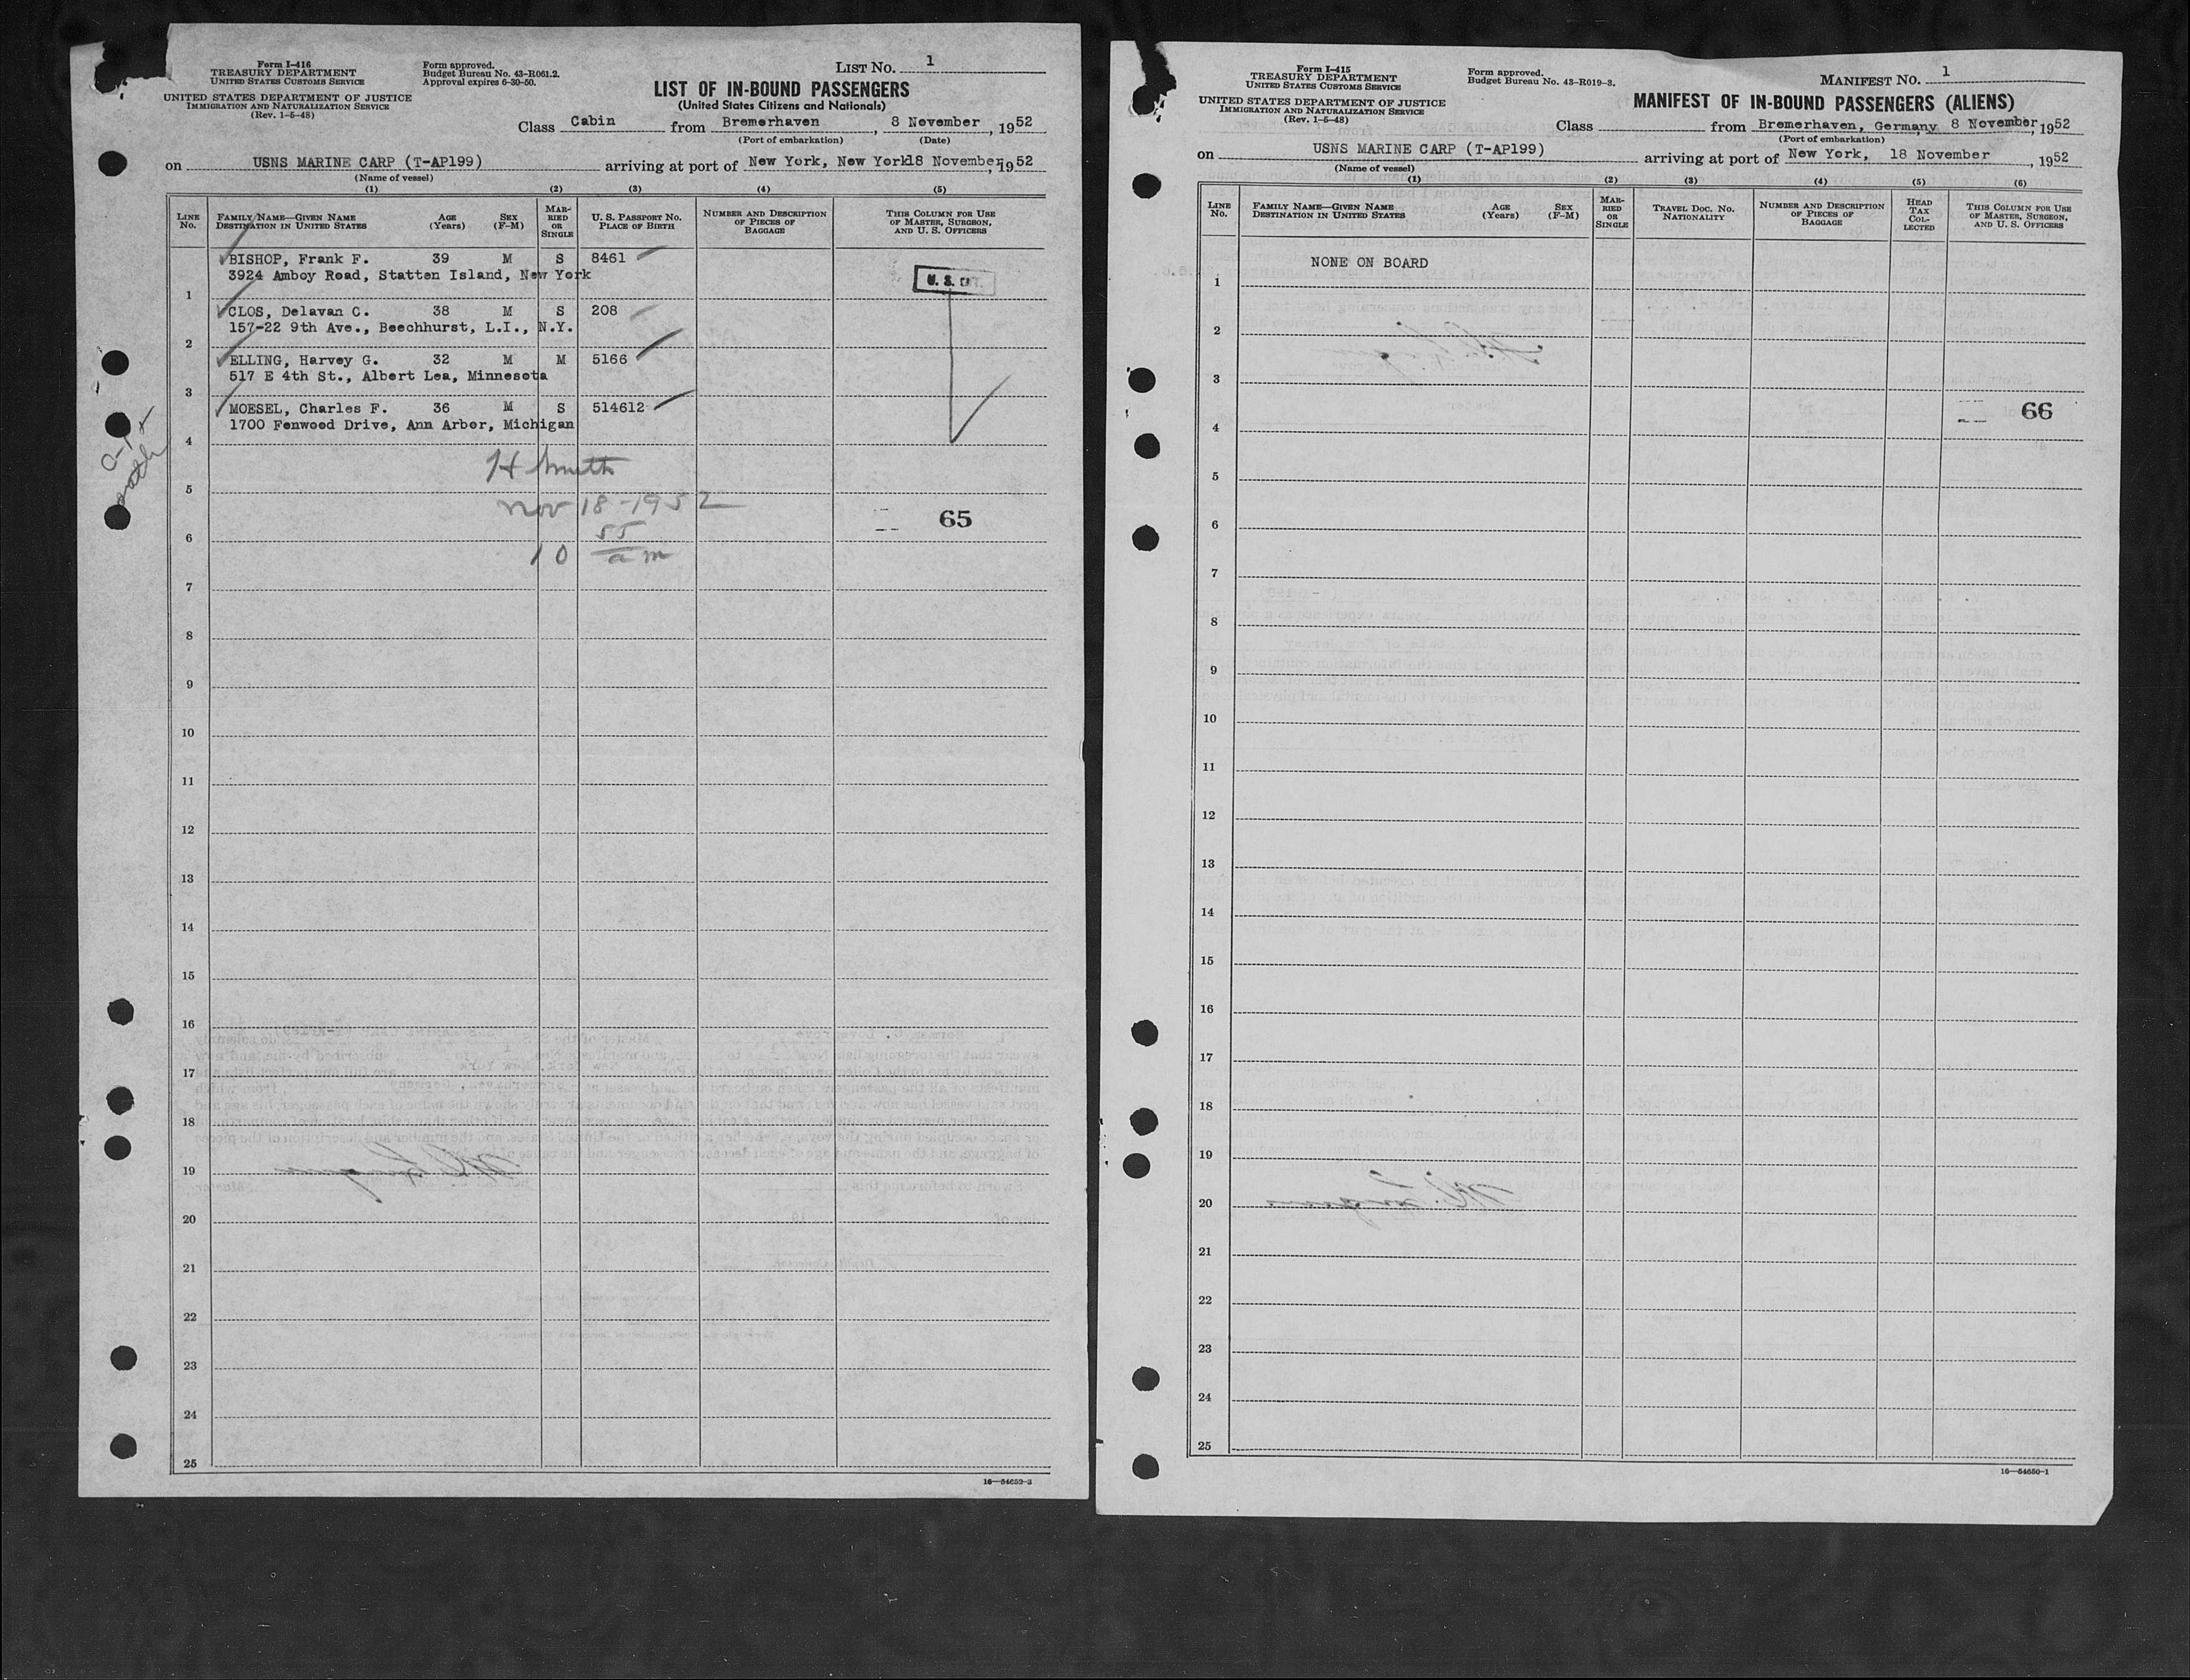 Form I-416
TREASURY DEPARTMENT
UNITED STATES CUSTOMS SERVICE
UNITED STATES DEPARTMENT OF JUSTICE
IMMIGRATION AND NATURALIZATION SERVICE
(Rev. 1-5-48)
Form approved.
Budget Bureau No. 43-R061.2.
Approval expires 6-30-50.
LIST NO. 1
LIST OF IN-BOUND PASSENGERS
(United States Citizens and Nationals)
Class Cabin from Bremerhaven, 8 November, 1952
(Port of embarkation) (Date)
on USNS MARINE CARP (T-AP199) arriving at port of New York, New York 18 November, 1952
(Name of vessel)
(1) (2) (3) (4) (5)
LINE NO. FAMILY NAME—GIVEN NAME DESTINATION IN UNITED STATES AGE (Years) SEX (F-M) MARRIED OR SINGLE U. S. PASSPORT NO. PLACE OF BIRTH NUMBER AND DESCRIPTION OF PIECES OF BAGGAGE THIS COLUMN FOR USE OF MASTER, SURGEON, AND U. S. OFFICERS
BISHOP, Frank F. 39 M S 8461
3924 Amboy Road, Statten Island, New York
1
CLOS, Delavan C. 38 M S 208
157-22 9th Ave., Beechhurst, L.I., N.Y.
2
ELLING, Harvey G. 32 M M 5166
517 E 4th St., Albert Lea, Minnesota
3
MOESEL, Charles F. 36 M S 514612
1700 Fenwood Drive, Ann Arbor, Michigan
4
H Smith
5
Nov 18-1952
65
6
10 55 am
7
8
9
10
11
12
13
14
15
16
17
18
19
20
21
22
23
24
25
16—54652-3
Form I-415
TREASURY DEPARTMENT
UNITED STATES CUSTOMS SERVICE
UNITED STATES DEPARTMENT OF JUSTICE
IMMIGRATION AND NATURALIZATION SERVICE
(Rev. 1-5-48)
Form approved.
Budget Bureau No. 43-R019-3.
MANIFEST NO. 1
MANIFEST OF IN-BOUND PASSENGERS (ALIENS)
Class from Bremerhaven, Germany 8 November, 1952
(Port of embarkation)
on USNS MARINE CARP (T-AP199) arriving at port of New York, 18 November, 1952
(Name of vessel)
(1) (2) (3) (4) (5) (6)
LINE NO. FAMILY NAME—GIVEN NAME DESTINATION IN UNITED STATES AGE (Years) SEX (F-M) MARRIED OR SINGLE TRAVEL DOC. NO. NATIONALITY NUMBER AND DESCRIPTION OF PIECES OF BAGGAGE HEAD TAX COLLECTED THIS COLUMN FOR USE OF MASTER, SURGEON, AND U. S. OFFICERS
NONE ON BOARD
1
2
3
66
4
5
6
7
8
9
10
11
12
13
14
15
16
17
18
19
20
21
22
23
24
25
16—54650-1